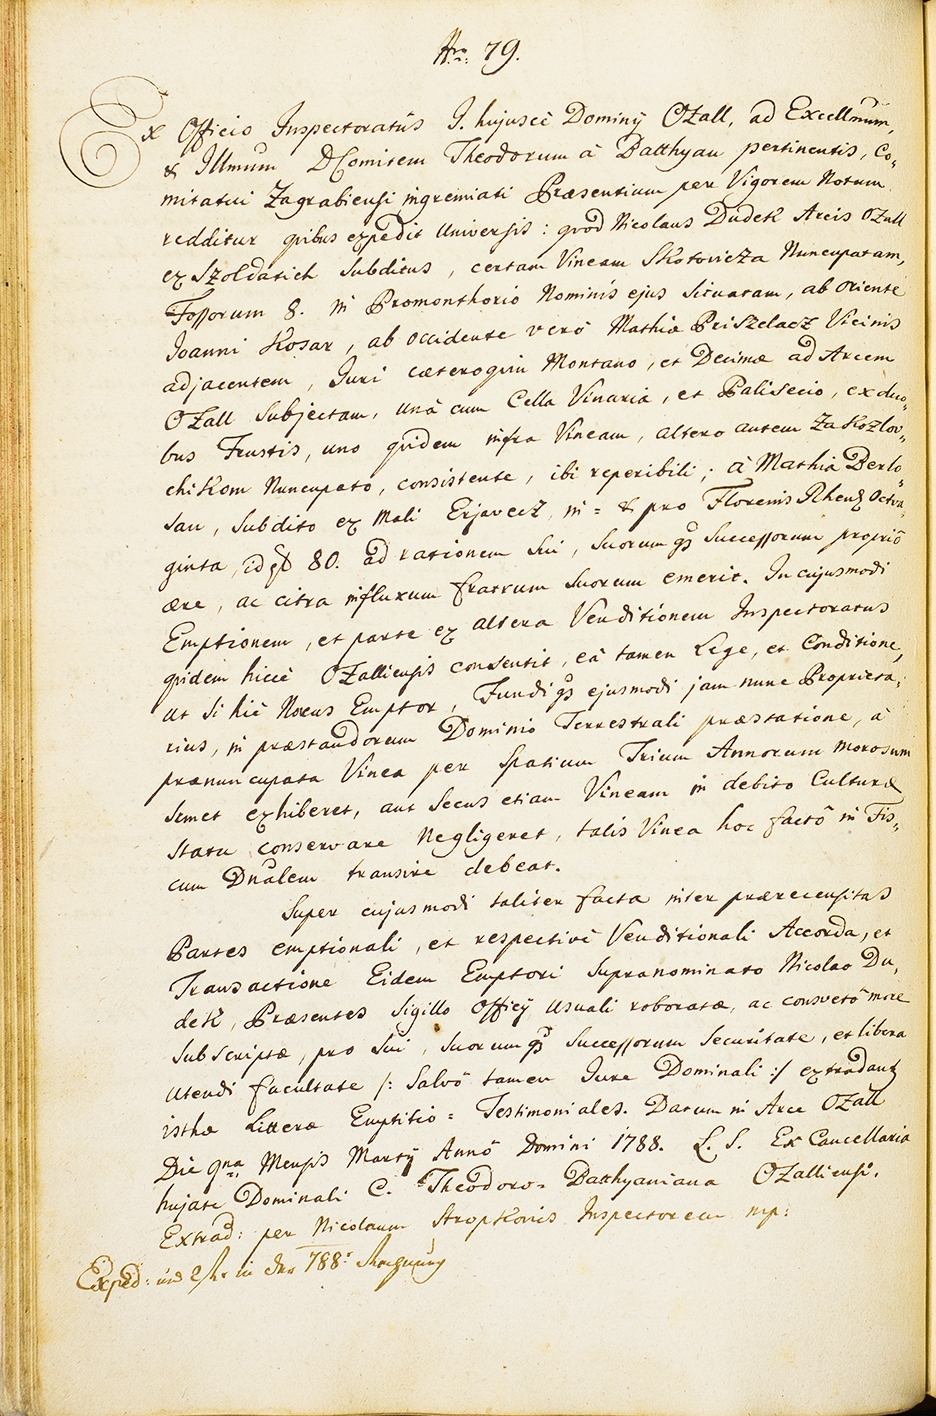 Nro: 79.
Ex Officio Inspectoratûs I. hujusce Dominÿ OZall, ad Excellmum,
& Illmum D Comitem Theodorum à Batthyan pertinentis, Co=
mitatui Zagrabiensi ingremiati Præsentium per Vigorem Notum
redditur quibus expedit Universis: quod Nicolaus Dudek Arcis OZall
ex Szoldatich Subditus, certam Vineam Skotovicza Nuncupatam,
Fossorum 8. in Promonthorio Nominis ejus Situatam, ab Oriente
Joanni Kosar, ab occidente verò Mathiæ Priszelacz Vicinis
adjacentem, Juri cæteroquin Montano, et Decimæ ad Arcem
OZall Subjectam, unà cum Cella Vinaria, et Palisecio, ex duo=
bus Frustis, uno quidem infra Vineam, altero autem Za Kozlov=
chikom Nuncupato, consistente, ibi reperibili; à Mathia Berlo
san, Subdito ex Mali Erjavecz, in = & pro Florenis Rhen. Octua=
ginta, id est 80. ad rationem Sui, Suorumqs Successorum propriô
ære, ac citra influxum fratrum Suorum emerit. In cujusmodi
Emptionem, et parte ex altera Venditionem Inspectoratus
quidem hicce OZalliensis consentit, eâ tamen Lege, et Conditione,
ut Si hic Novus Emptor, Fundiqs ejusmodi jam nunc Proprieta=
rius, in præstandorum Dominio Terrestrali præstatione, à
prænuncupata Vinea per Spatium Trium Annorum morosum
Semet exhiberet, aut Secus etiam Vineam in debito Culturæ
Statu conservare Negligeret, talis Vinea hoc factô in Fis=
cum Dnalem transire debeat.
Super cujusmodi taliter facta inter prærecensitas
Partes emptionali, et respective Venditionali Accorda, et
Transactione Eidem Emptori Supranominato Nicolao Du=
dek, Præsentes Sigillo Officÿ Usuali roboratæ, ac consvetô more
Subscriptæ, pro Sui, Suorumqs Successorum Securitate, et libera
Utendi facultate /: Salvô tamen Jure Dominali :/ extradant
isthæ Litteræ Emptitio = Testimoniales. Datum in Arce OZall
Die 9na Mensis Martÿ Annô Domini 1788. L. S. Ex Cancellaria
hujate Dominali C. Theodoro = Batthyaniana OZalliensi.
Extrad: per Nicolaum Stropkovics Inspectorem mp:
Exped: in der 788r Rechnung